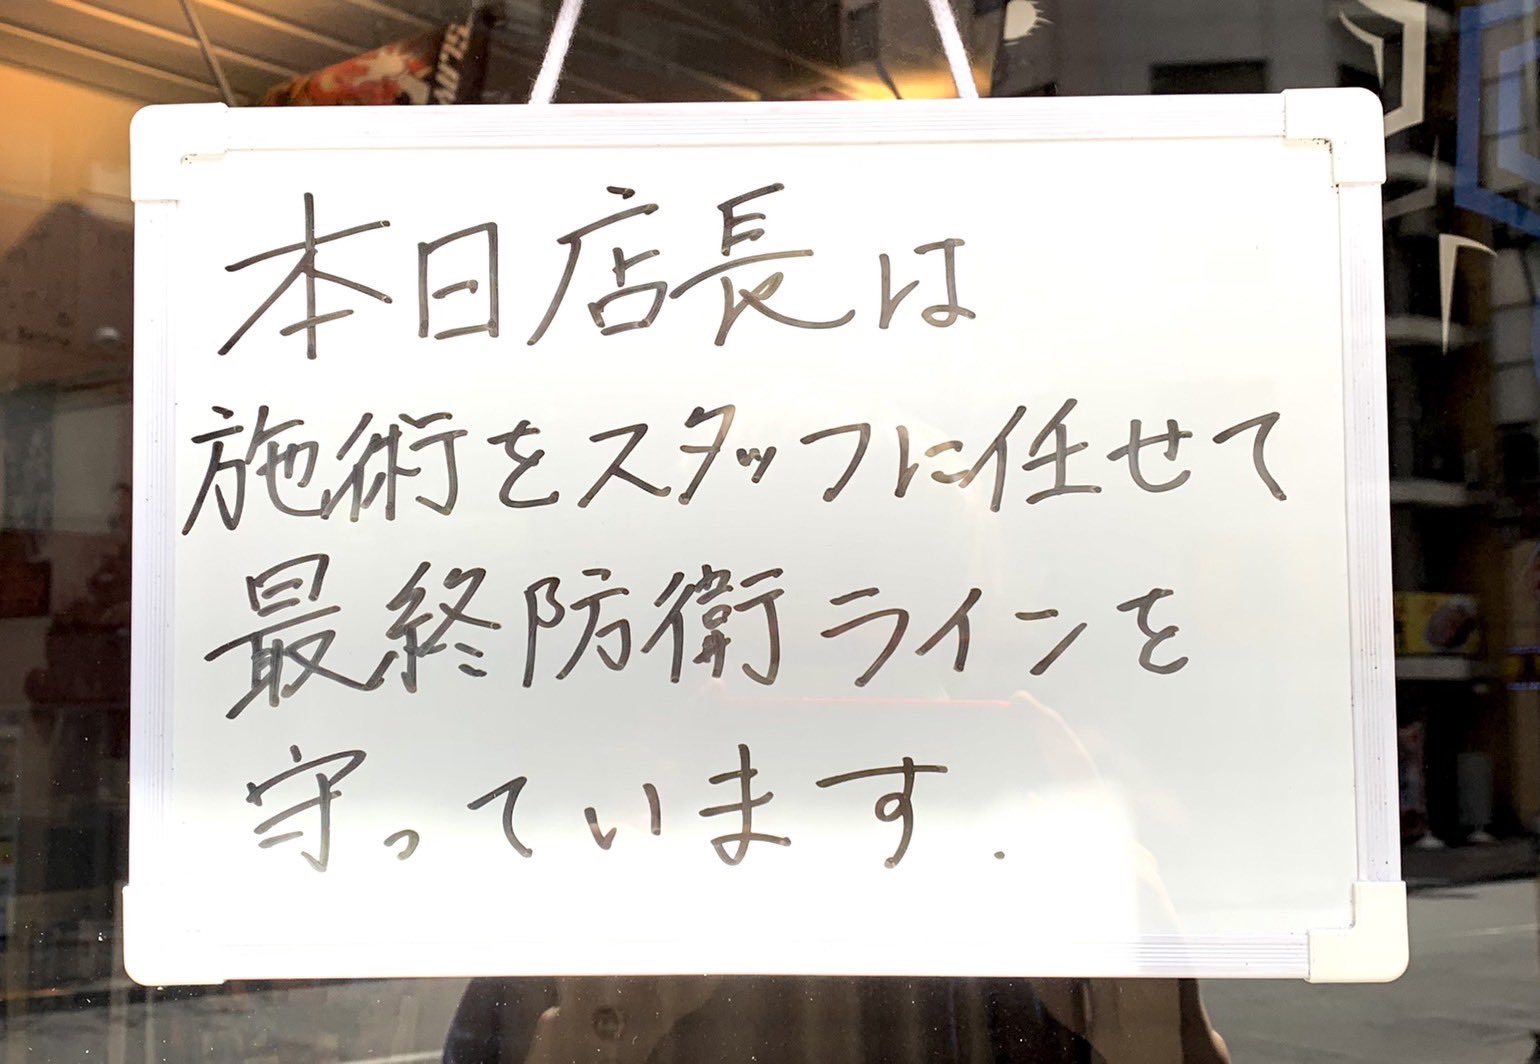 本日店長は
施術をスタッフに任せて
最終防衛ラインを
守っています.